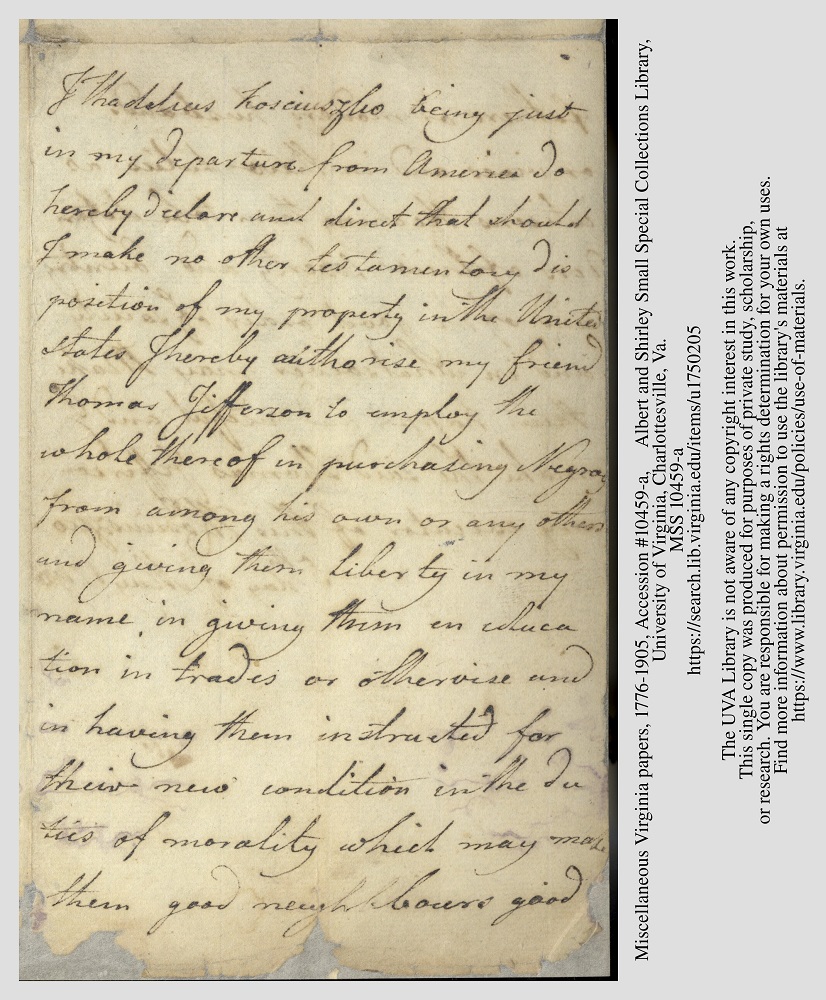 I Thaddeus Kosciuszko being just
in my departure from America do
hereby declare and direct that should
I make no other testamentory dis
position of my property in the United
states I hereby authorise my friend
Thomas Jefferson to employ the
whole thereof in purchasing Negroes
from among his own or any others
and giving them liberty in my
name in giving them en educa
tion in trades or otherwise and
in having them instructed for
their new condition in the du
ties of morality which may make
them good neighbours good
Miscellaneous Virginia papers, 1776-1905, Accession #10459-a, Albert and Shirley Small Special Collections Library,
University of Virginia, Charlottesville, Va.
MSS 10459-a
https://search.lib.virginia.edu/items/u1750205
The UVA Library is not aware of any copyright interest in this work.
This single copy was produced for purposes of private study, scholarship,
or research. You are responsible for making a rights determination for your own uses.
Find more information about permission to use the library's materials at
https://www.library.virginia.edu/policies/use-of-materials.